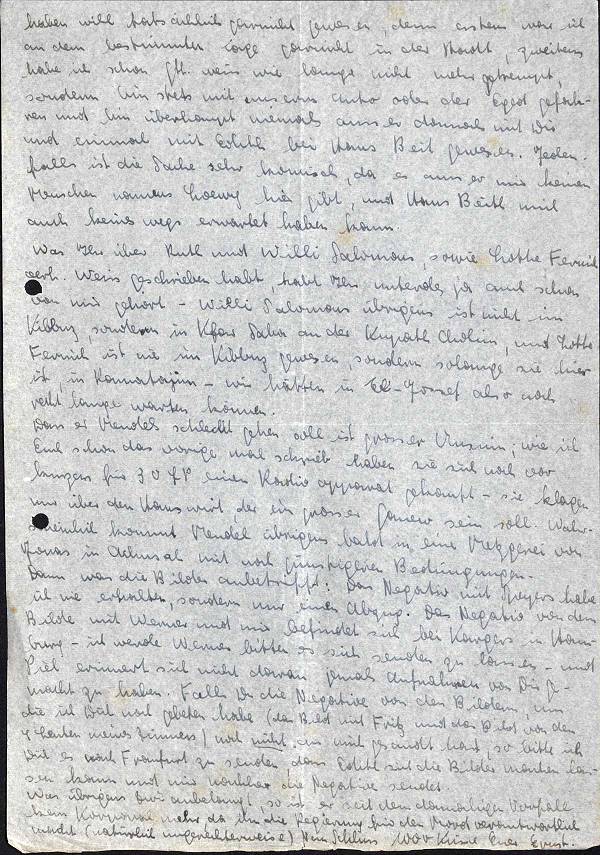 haben will tatsächlich gewesen, denn erstens war ich
an dem bestimmten Tage garnicht in der Stadt, zweitens
habe ich schon Gtt. weiss wie lange nicht mehr getrampt,
sondern bin stets mit unserem Auto oder der Eged gefah-
ren und bin überhaupt niemals ausser damals mit Dir
und einmal mit Edith bei Hans Beit gewesen. Jeden-
falls ist die Sache sehr komisch, da es ausser mir keinen
Menschen namens Loewy hier gibt, und Hans Beith mich
auch keineswegs erwartet haben kann.
Was Ihr über Ruth und Willi Salomons, sowie Lotte Fernich
verh. Weis geschrieben habt, habt Ihr unterdes ja auch schon
von mir gehört – Willi Salomons übrigens ist nicht im
Kibbuz, sondern in Kfar Saba an der Kupath Cholim, und Lotte
Fernich ist nie im Kibbuz gewesen, sondern solange sie hier
ist, in Ramatajim – wir hätten in also noch
recht lange warten können.
Dass es Mendels schlecht gehen soll ist grosser Unsinn; wie ich
Euch schon das vorige mal schrieb haben sie sich noch vor
kurzem für 30 einen Radio apparat gekauft – sie klagen
nur über den Hauswirt der ein grosser Ganew sein soll. Wahr-
scheinlich kommt Mendel übrigens bald in eine Metzgerei von
Jonas in mit noch günstigeren Bedingungen.
Dann was die Bilder anbetrifft: Das Negativ mit Speyers habe
ich nie erhalten, sondern nur einen Abzug. Das Negativ von dem
Bilde mit Werner und mir befindet sich bei Kargers in Ham-
burg – ich werde Werner bitten es sich senden zu lassen – und
Piel erinnert sich nicht daran jemals Aufnahmen von Dir ge-
macht zu haben. Falls Du die Negative von den Bildern, um
die ich Dich noch gebeten habe (das Bild mit Fritz und das Bild von den
meines Zimmers) noch nicht an mich gesandt hast, so bitte ich
Dich es nach Frankfurt zu senden dass Edith sich die Bilder machen las-
sen kann und mir nachher die Negative sendet.
Was übrigens anbelangt, so ist er seit dem damaligen Vorfall
kein mehr da ihn die Regierung für den Mord verantwortlich
macht (natürlich ungerechterweise) Nun Schluss Küsse Euer Ernst.